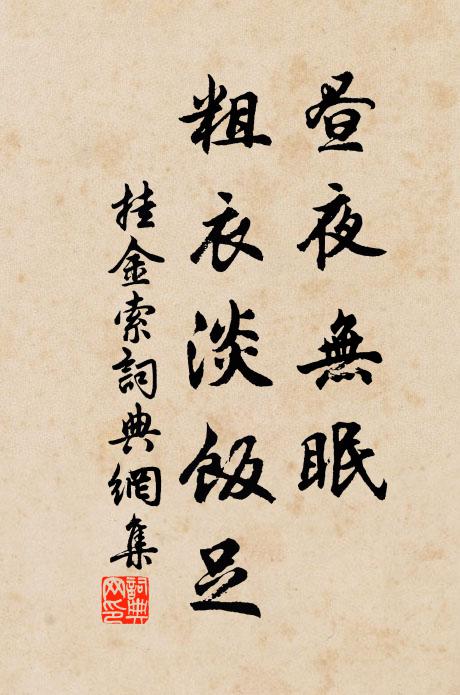 昼夜無眠
粗衣淡飯足
挂金索詞典網集
詞典網印